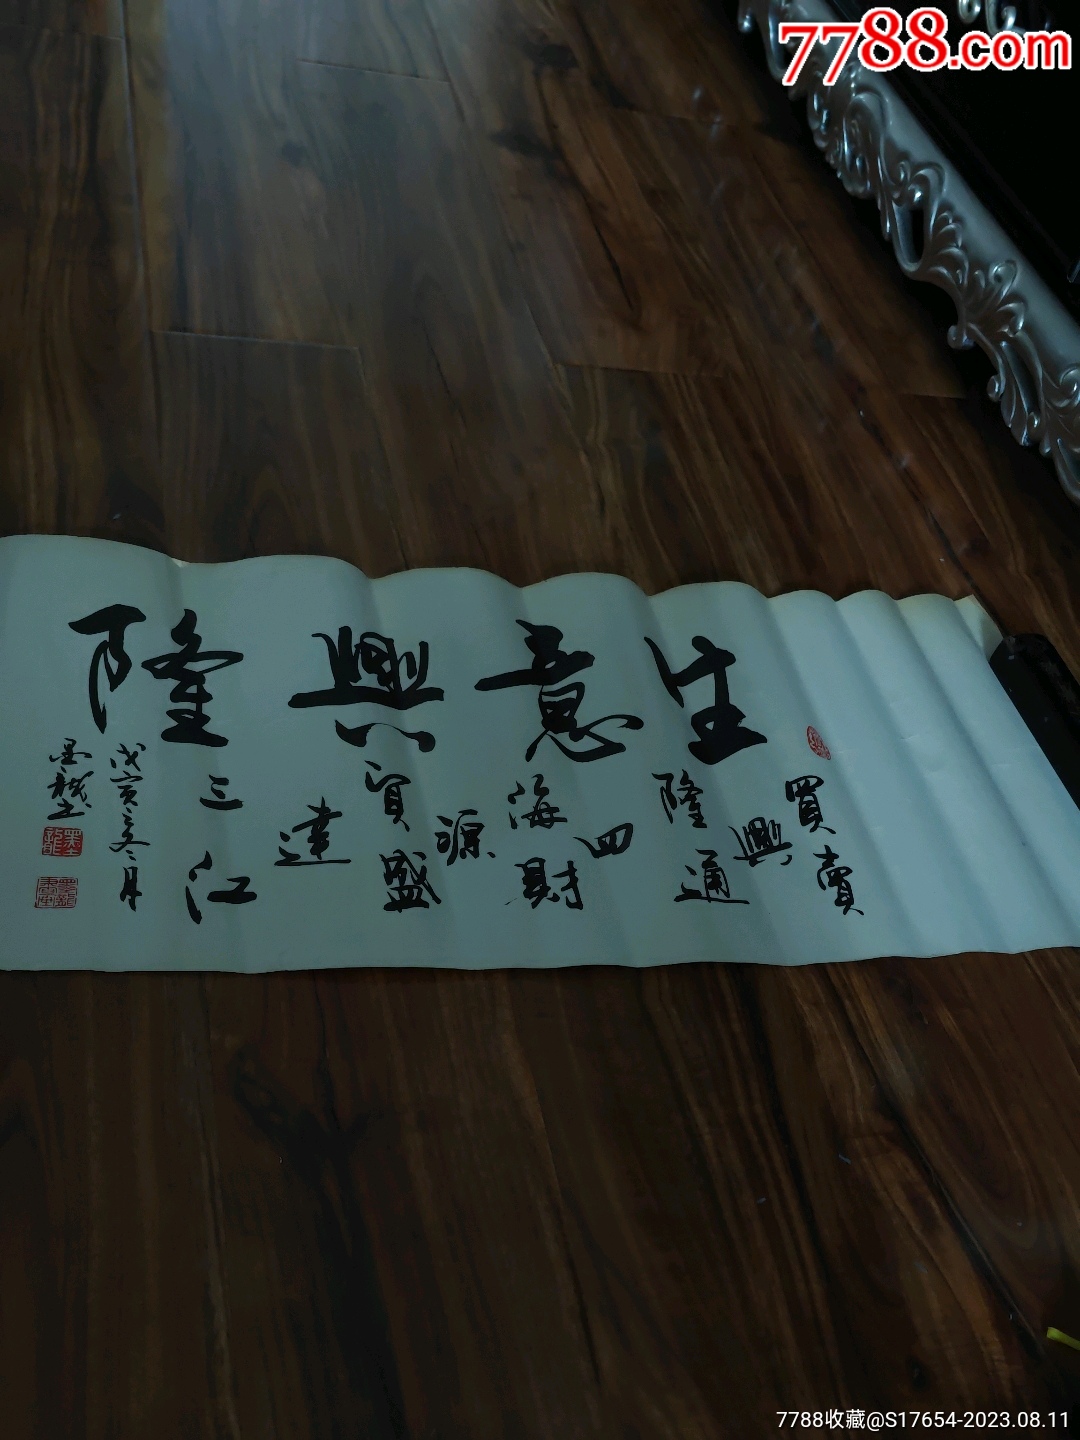 7788.com
生意興隆
買賣興隆通四海財源盛達三江
冬月
7788收藏@S17654-2023.08.11